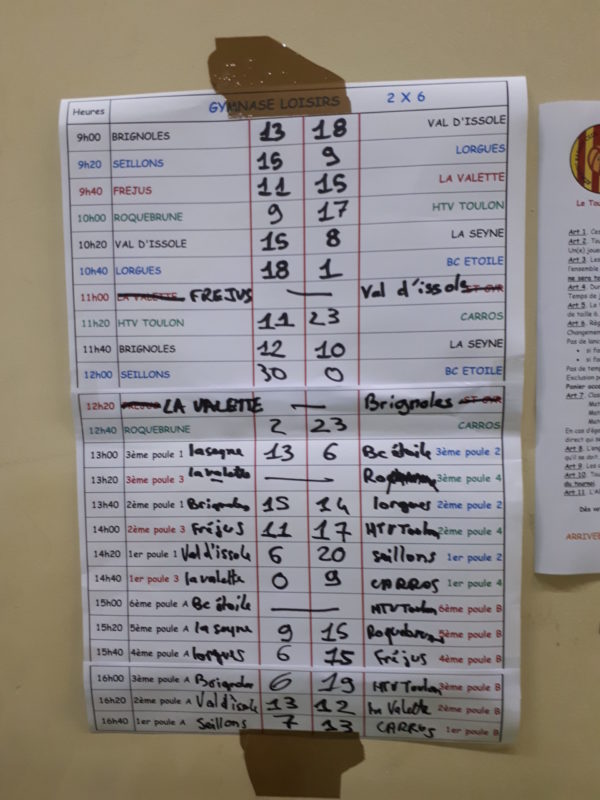 Heures GYMNASE LOISIRS 2 X 6
9h00 BRIGNOLES 13 18 VAL D'ISSOLE
9h20 SEILLONS 15 9 LORGUES
9h40 FREJUS 11 15 LA VALETTE
10h00 ROQUEBRUNE 9 17 HTV TOULON
10h20 VAL D'ISSOLE 15 8 LA SEYNE
10h40 LORGUES 18 1 BC ETOILE
11h00 LA VALETTE FREJUS — Val d'issole ST CYR
11h20 HTV TOULON 11 23 CARROS
11h40 BRIGNOLES 12 10 LA SEYNE
12h00 SEILLONS 30 0 BC ETOILE
12h20 FREJUS LA VALETTE — Brignoles ST CYR
12h40 ROQUEBRUNE 2 23 CARROS
13h00 3ème poule 1 la seyne 13 6 Bc étoile 3ème poule 2
13h20 3ème poule 3 la valette — 3ème poule 4
13h40 2ème poule 1 Brignoles 15 14 lorgues 2ème poule 2
14h00 2ème poule 3 Fréjus 11 17 HTV Toulon 2ème poule 4
14h20 1er poule 1 Val d'issole 6 20 seillons 1er poule 2
14h40 1er poule 3 la valette 0 9 CARROS 1er poule 4
15h00 6ème poule A Bc étoile — HTV Toulon 6ème poule B
15h20 5ème poule A la seyne 9 15 Roquebrune 5ème poule B
15h40 4ème poule A lorgues 6 15 Fréjus 4ème poule B
16h00 3ème poule A Brignoles 6 19 HTV Toulon 3ème poule B
16h20 2ème poule A Val d'issole 13 12 la Valette 2ème poule B
16h40 1er poule A Seillons 7 13 CARROS 1er poule B
Le Tou
Art 1. Ces
Art 2. Tou
Un(e) joue
Art 3. Les
l'ensemble
ne sera to
Art 4. Dur
Temps de j
Art 5. Le
de taille 6.
Art 6. Règ
Changemen
Pas de lanc
• si fa
• si fa
Pas de temp
Exclusion p
Panier acco
Art 7. Clas
Mat
Mat
Mat
En cas d'éga
direct qui se
Art 8. L'eng
qu'il se doit
Art 9. Les c
Art 10. Tou
du tournoi.
Art 11. L'A
Dès vo
ARRIVEE